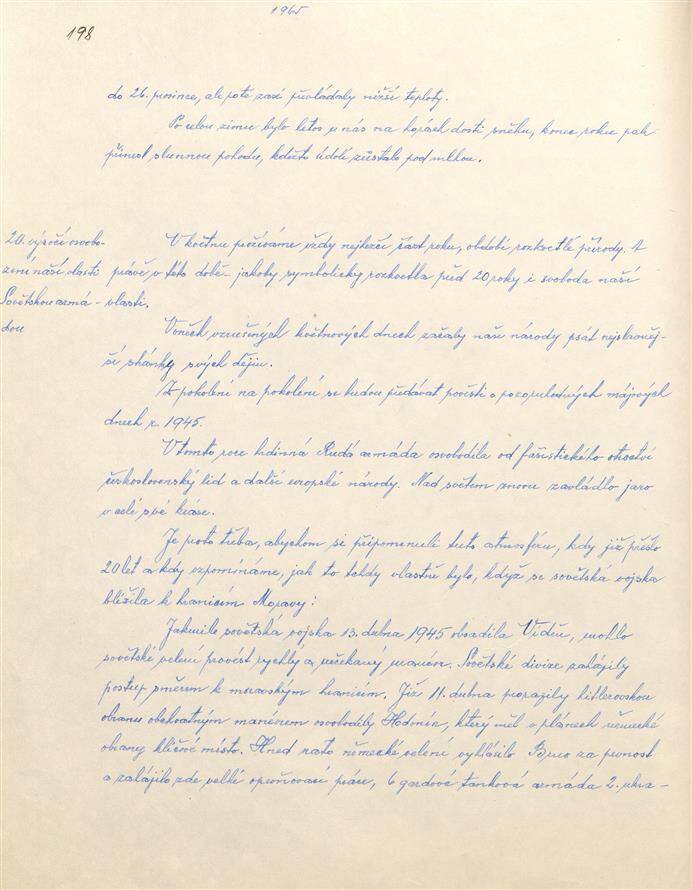 1965
198
do 26. prosince, ale poté zase převládaly nižší teploty.
Po celou zimu bylo letos u nás na horách dosti sněhu, konec roku pak
přinesl slunnou pohodu, kdežto údolí zůstalo pod mlhou.
20. výročí osvobo-
zení naší vlasti
Sovětskou armá-
dou
V květnu prožíváme vždy nejhezčí část roku, období rozkvetlé přírody. A
právě v této době - jakoby symbolicky rozkvetla před 20 roky i svoboda naší
vlasti.
V oněch vzrušených květnových dnech začaly naše národy psát nejslavněj-
ší stránky svých dějin.
Z pokolení na pokolení se budou předávat pověsti o pozoruhodných májových
dnech r. 1945.
V tomto roce hrdinná Rudá armáda osvobodila od fašistického otroctví
československý lid a další evropské národy. Nad světem znovu zavládlo jaro
v celé své kráse.
Je proto třeba, abychom si připomenuli tuto atmosféru, kdy již přešlo
20 let a kdy vzpomínáme, jak to tehdy vlastně bylo, když se sovětská vojska
blížila k hranicím Moravy:
Jakmile sovětská vojska 13. dubna 1945 obsadila Vídeň, mohlo
sovětské velení provést rychlý a nečekaný manévr. Sovětské divize zahájily
postup směrem k moravským hranicím. Již 11. dubna porazily hitlerovskou
obranu obchvatným manévrem osvobodily Hodonín, který měl v plánech německé
obrany klíčové místo. Hned nato německé velení vyhlásilo Brno za pevnost
a zahájilo zde velké opevňovací práce, 6 gardová tanková armáda 2. ukra-